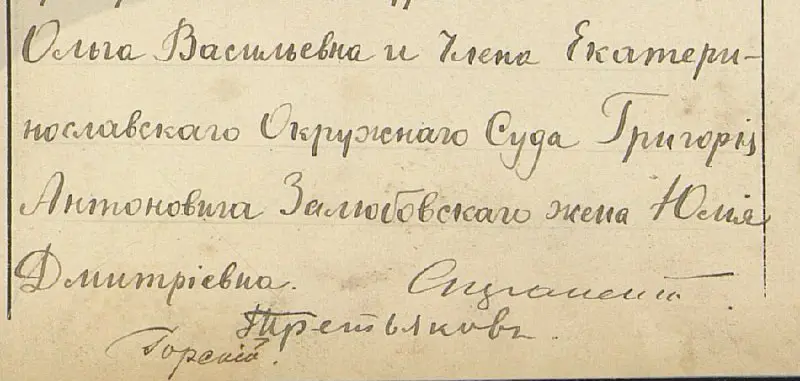 Ольга Васильевна и Члена Екатери-
нославскаго Окружнаго Суда Григорія
Антоновича Залюбовскаго жена Юлія
Дмитріевна.
Третьяковъ.
Горскій.